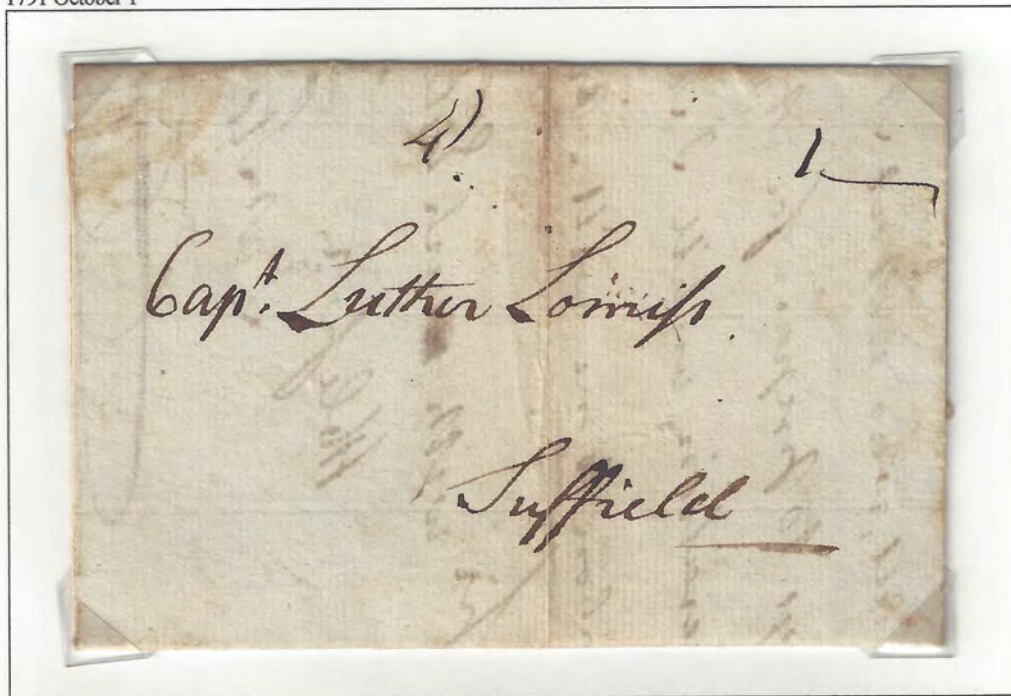 1791 October 1
4)
1
Capt. Luther Lomiss.
Suffield